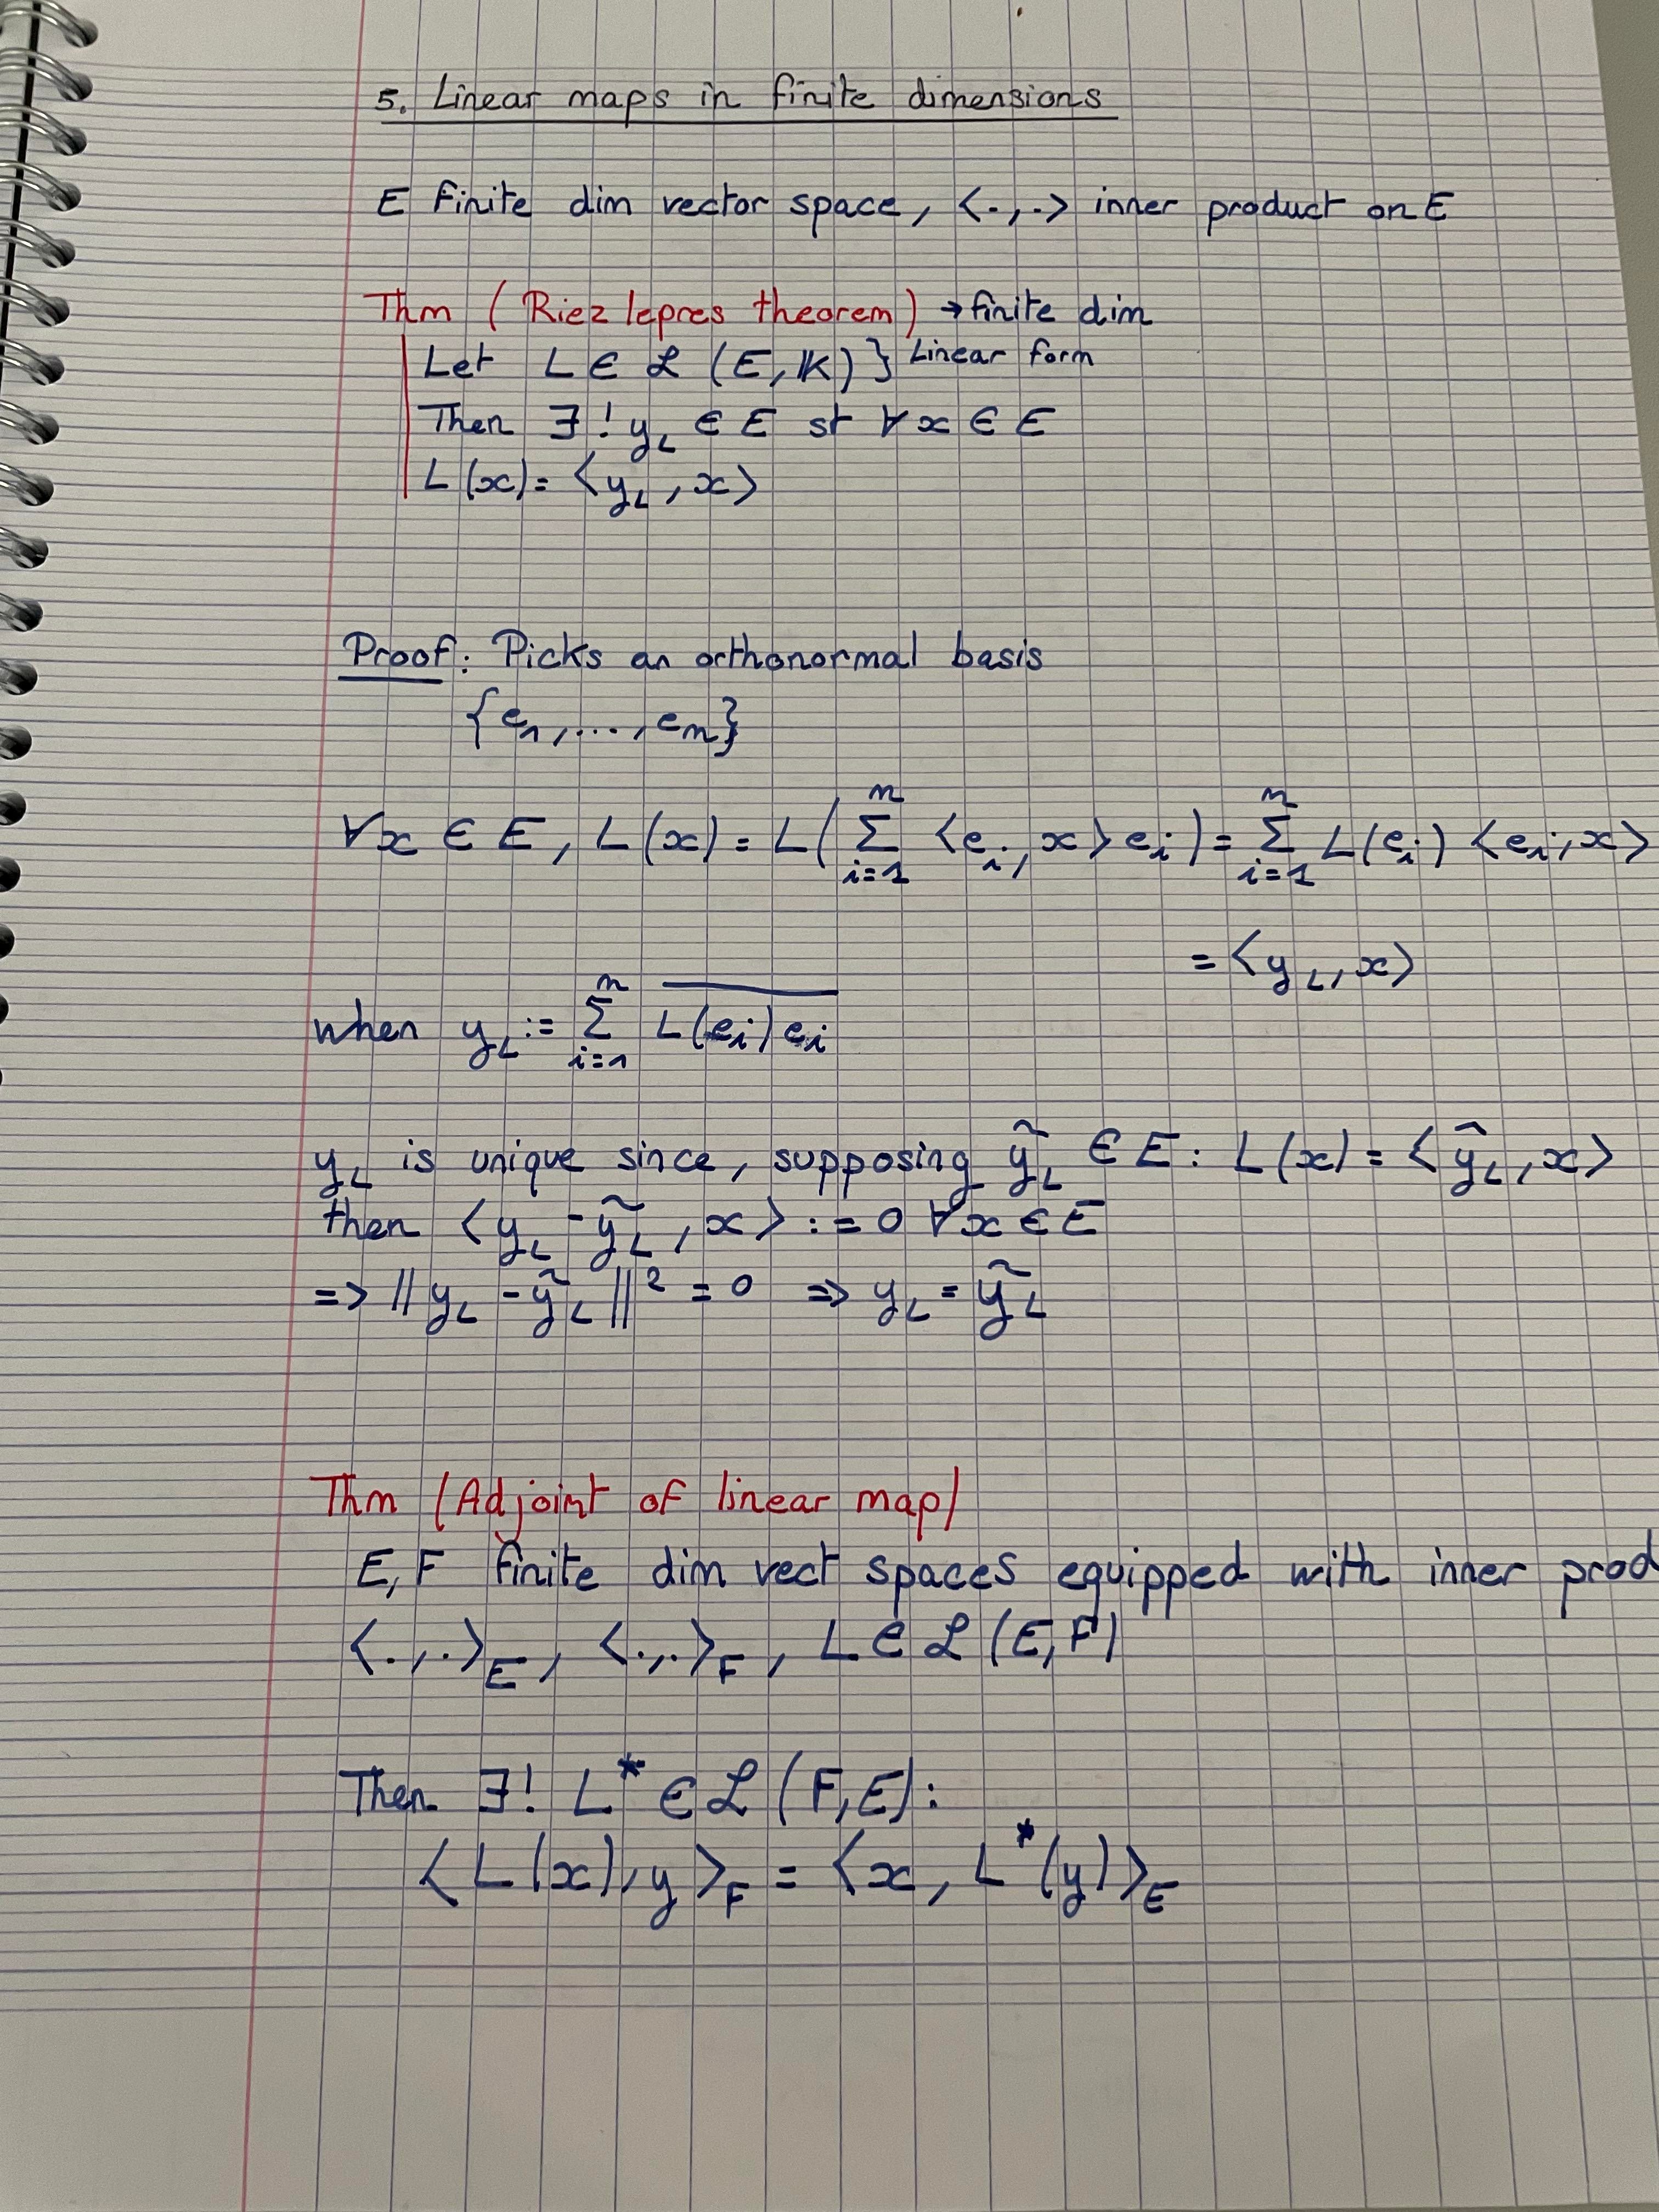 5. Linear maps in finite dimensions
E finite dim vector space, <.,.> inner product on E
Thm (Riez lepres theorem) → finite dim
Let L ∈ ℒ (E, 𝕂) } Linear form
Then ∃! y_L ∈ E st ∀x ∈ E
L(x) = <y_L, x>
Proof: Picks an orthonormal basis
{e_1, ..., e_n}
∀x ∈ E, L(x) = L(∑_{i=1}^{n} <e_i, x> e_i) = ∑_{i=1}^{n} L(e_i) <e_i, x>
= <y_L, x>
when y_L := ∑_{i=1}^{n} \overline{L(e_i) e_i}
y_L is unique since, supposing ỹ_L ∈ E : L(x) = <ŷ_L, x>
then <y_L - ỹ_L, x> := 0 ∀x ∈ E
=> ||y_L - ỹ_L||² = 0 => y_L = ỹ_L
Thm (Adjoint of linear map)
E, F finite dim vect spaces equipped with inner prod
<.,.>_E, <.,.>_F, L ∈ ℒ (E, F)
Then ∃! L* ∈ ℒ (F, E):
<L(x), y>_F = <x, L*(y)>_E